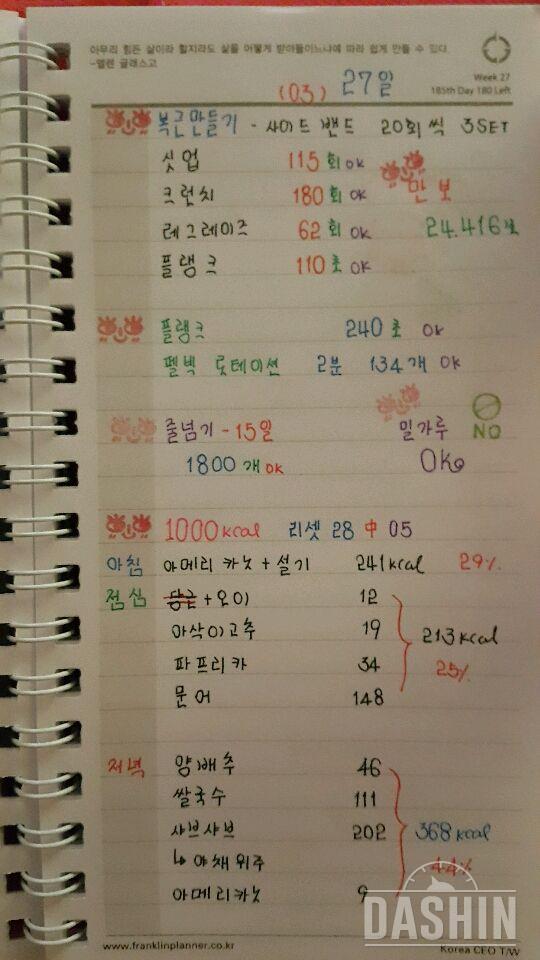 아무리 힘든 삶이라 할지라도 삶을 어떻게 받아들이느냐에 따라 쉽게 만들 수 있다.
-엘렌 글래스고
Week 27
185th Day 180 Left
(03) 27일
복근만들기 - 사이드 밴드 20회씩 3SET
싯업 115회 OK
만보
크런치 180회 OK
레그레이즈 62회 OK 24.416보
플랭크 110초 OK
플랭크 240초 OK
펠빅 로테이션 2분 134개 OK
줄넘기 - 15일 밀가루 NO
1800개 OK OK
1000kcal 리셋 28 中 05
아침 아메리카노 + 설기 241kcal 29%
점심 당근 + 오이 12
아삭이고추 19 213kcal
파프리카 34 25%
문어 148
저녁 양배추 46
쌀국수 111
샤브샤브 202 368kcal
↳ 야채위주 44%
아메리카노 9
DASHIN
www.franklinplanner.co.kr Korea CEO T/W